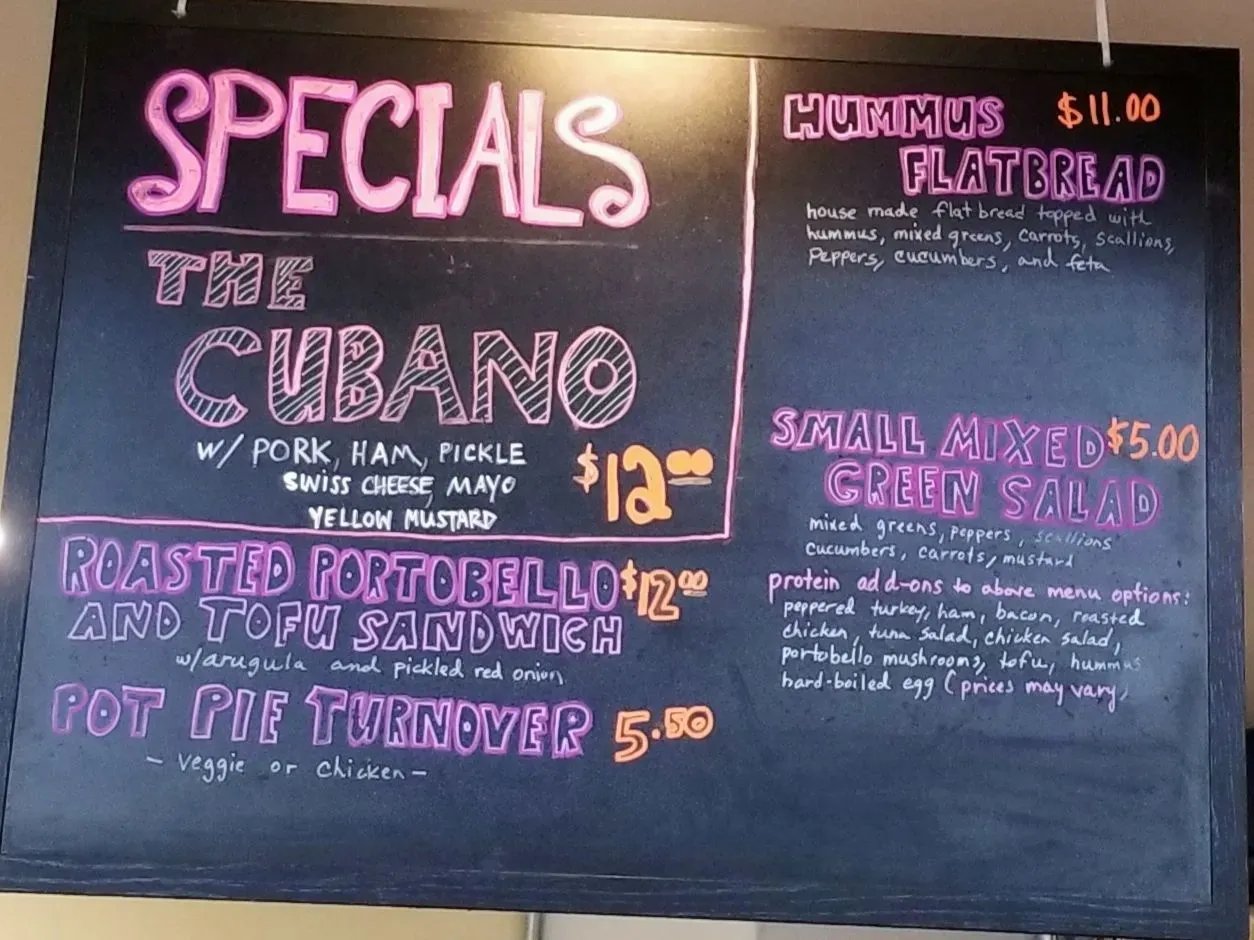 SPECIALS
THE
CUBANO
W/ PORK, HAM, PICKLE
SWISS CHEESE, MAYO
YELLOW MUSTARD
$12.00
ROASTED PORTOBELLO $12.00
AND TOFU SANDWICH
w/arugula and pickled red onion
POT PIE TURNOVER 5.50
- veggie or chicken -
HUMMUS $11.00
FLATBREAD
house made flatbread topped with
hummus, mixed greens, carrots, scallions,
Peppers, cucumbers, and feta
SMALL MIXED $5.00
GREEN SALAD
mixed greens, peppers, scallions
cucumbers, carrots, mustard
protein add-ons to above menu options:
peppered turkey, ham, bacon, roasted
chicken, tuna salad, chicken salad,
portobello mushrooms, tofu, hummus
hard-boiled egg (prices may vary)